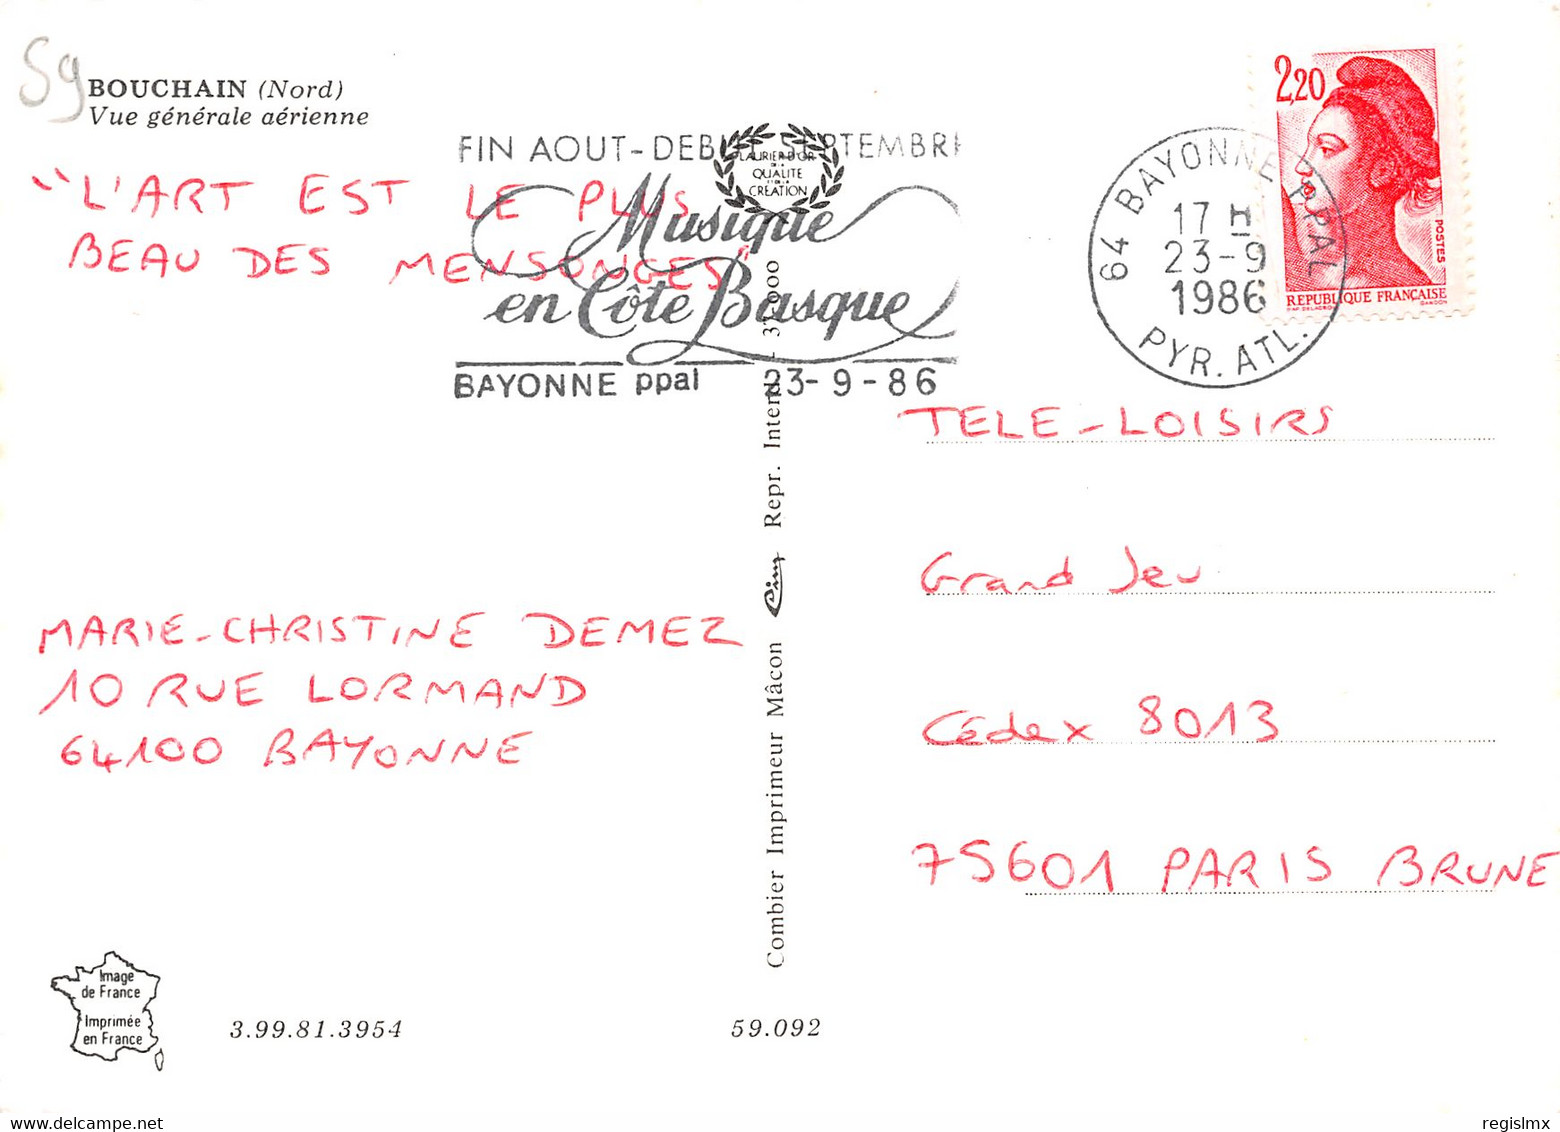 59
BOUCHAIN (Nord)
Vue générale aérienne
FIN AOUT-DEBUT SEPTEMBRE
LAURIER D'OR
DE LA
QUALITE
ET DE LA
CRÉATION
Musique
en Côte Basque
BAYONNE ppal 23-9-86
"L'ART EST LE PLUS
BEAU DES MENSONGES"
64 BAYONNE PPAL
17 H
23-9
1986
PYR. ATL.
2,20
POSTES
REPUBLIQUE FRANÇAISE
GANDON
TELE-LOISIRS
Grand Jeu
Cédex 8013
75601 PARIS BRUNE
MARIE-CHRISTINE DEMEZ
10 RUE LORMAND
64100 BAYONNE
Combier Imprimeur Mâcon Cim Repr. Interd. - 37.000
Image
de France
Imprimée
en France
3.99.81.3954
59.092
regislmx